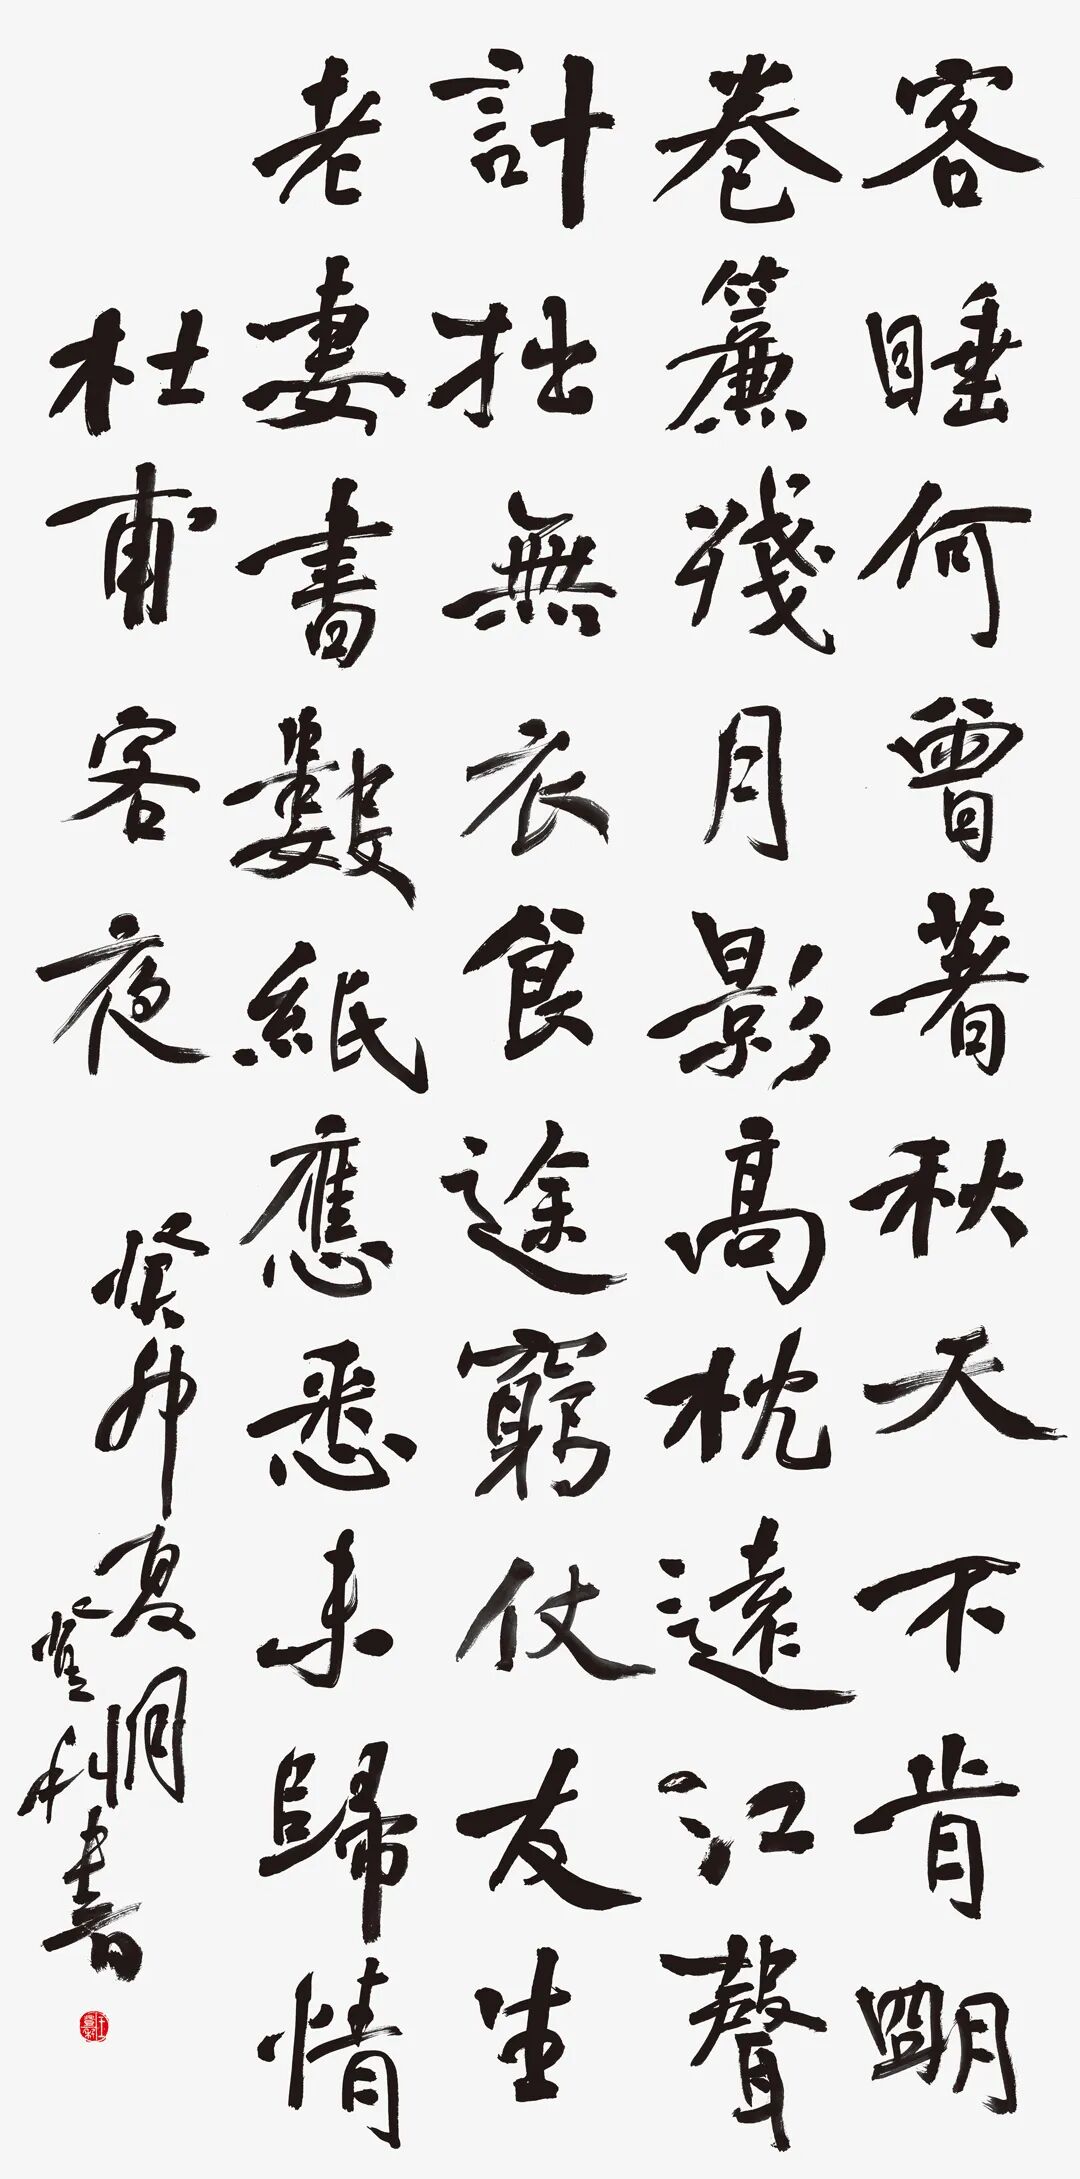 客睡何曾著秋天不肯明
卷簾殘月影高枕遠江聲
計拙無衣食途窮仗友生
老妻書數紙應悉未歸情
杜甫客夜 癸卯夏
書